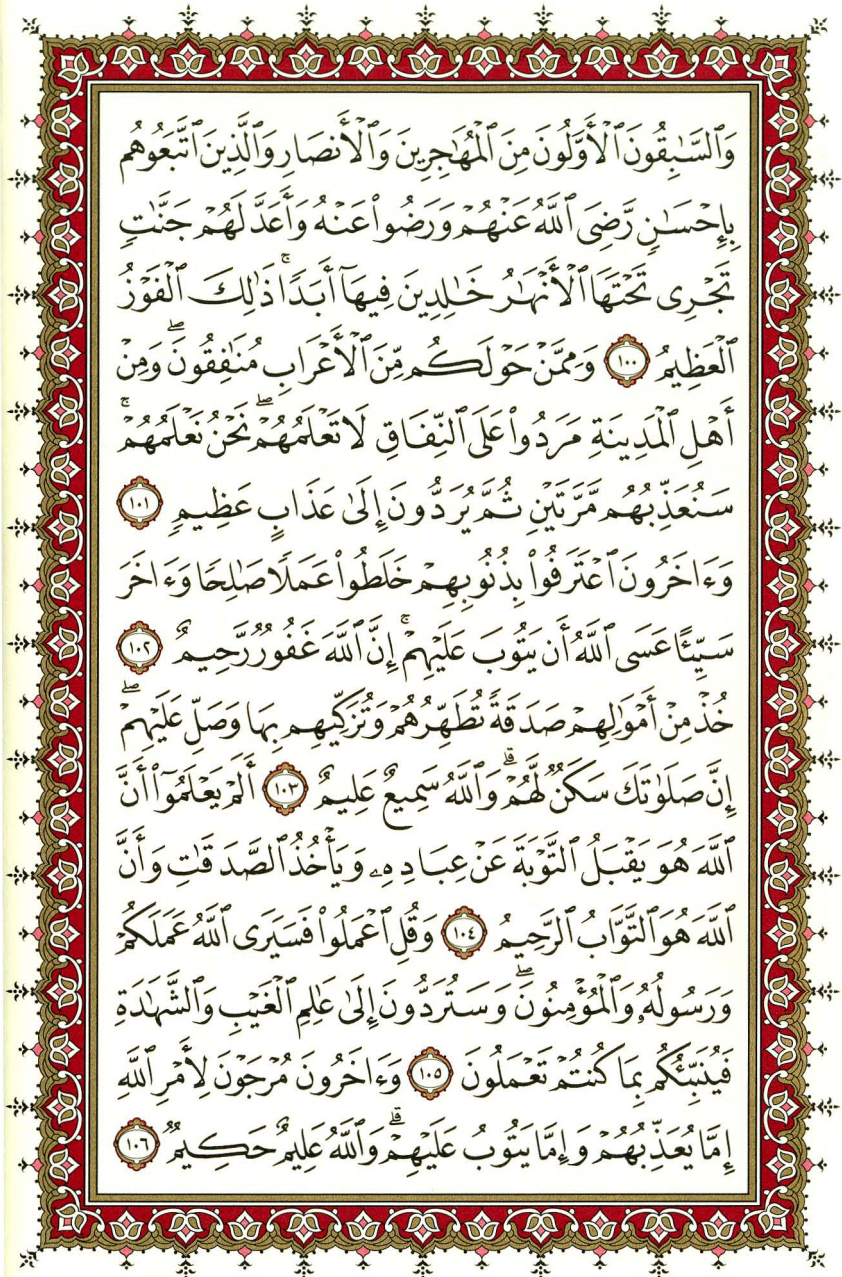 وَٱلسَّٰبِقُونَ ٱلْأَوَّلُونَ مِنَ ٱلْمُهَٰجِرِينَ وَٱلْأَنصَارِ وَٱلَّذِينَ ٱتَّبَعُوهُم
بِإِحْسَٰنٍ رَّضِىَ ٱللَّهُ عَنْهُمْ وَرَضُوا۟ عَنْهُ وَأَعَدَّ لَهُمْ جَنَّٰتٍ
تَجْرِى تَحْتَهَا ٱلْأَنْهَٰرُ خَٰلِدِينَ فِيهَآ أَبَدًا ۚ ذَٰلِكَ ٱلْفَوْزُ
ٱلْعَظِيمُ ١٠٠ وَمِمَّنْ حَوْلَكُم مِّنَ ٱلْأَعْرَابِ مُنَٰفِقُونَ ۖ وَمِنْ
أَهْلِ ٱلْمَدِينَةِ مَرَدُوا۟ عَلَى ٱلنِّفَاقِ لَا تَعْلَمُهُمْ ۖ نَحْنُ نَعْلَمُهُمْ ۚ
سَنُعَذِّبُهُم مَّرَّتَيْنِ ثُمَّ يُرَدُّونَ إِلَىٰ عَذَابٍ عَظِيمٍ ١٠١
وَءَاخَرُونَ ٱعْتَرَفُوا۟ بِذُنُوبِهِمْ خَلَطُوا۟ عَمَلًا صَٰلِحًا وَءَاخَرَ
سَيِّئًا عَسَى ٱللَّهُ أَن يَتُوبَ عَلَيْهِمْ ۚ إِنَّ ٱللَّهَ غَفُورٌ رَّحِيمٌ ١٠٢
خُذْ مِنْ أَمْوَٰلِهِمْ صَدَقَةً تُطَهِّرُهُمْ وَتُزَكِّيهِم بِهَا وَصَلِّ عَلَيْهِمْ ۖ
إِنَّ صَلَوٰتَكَ سَكَنٌ لَّهُمْ ۗ وَٱللَّهُ سَمِيعٌ عَلِيمٌ ١٠٣ أَلَمْ يَعْلَمُوٓا۟ أَنَّ
ٱللَّهَ هُوَ يَقْبَلُ ٱلتَّوْبَةَ عَنْ عِبَادِهِۦ وَيَأْخُذُ ٱلصَّدَقَٰتِ وَأَنَّ
ٱللَّهَ هُوَ ٱلتَّوَّابُ ٱلرَّحِيمُ ١٠٤ وَقُلِ ٱعْمَلُوا۟ فَسَيَرَى ٱللَّهُ عَمَلَكُمْ
وَرَسُولُهُۥ وَٱلْمُؤْمِنُونَ ۖ وَسَتُرَدُّونَ إِلَىٰ عَٰلِمِ ٱلْغَيْبِ وَٱلشَّهَٰدَةِ
فَيُنَبِّئُكُم بِمَا كُنتُمْ تَعْمَلُونَ ١٠٥ وَءَاخَرُونَ مُرْجَوْنَ لِأَمْرِ ٱللَّهِ
إِمَّا يُعَذِّبُهُمْ وَإِمَّا يَتُوبُ عَلَيْهِمْ ۗ وَٱللَّهُ عَلِيمٌ حَكِيمٌ ١٠٦